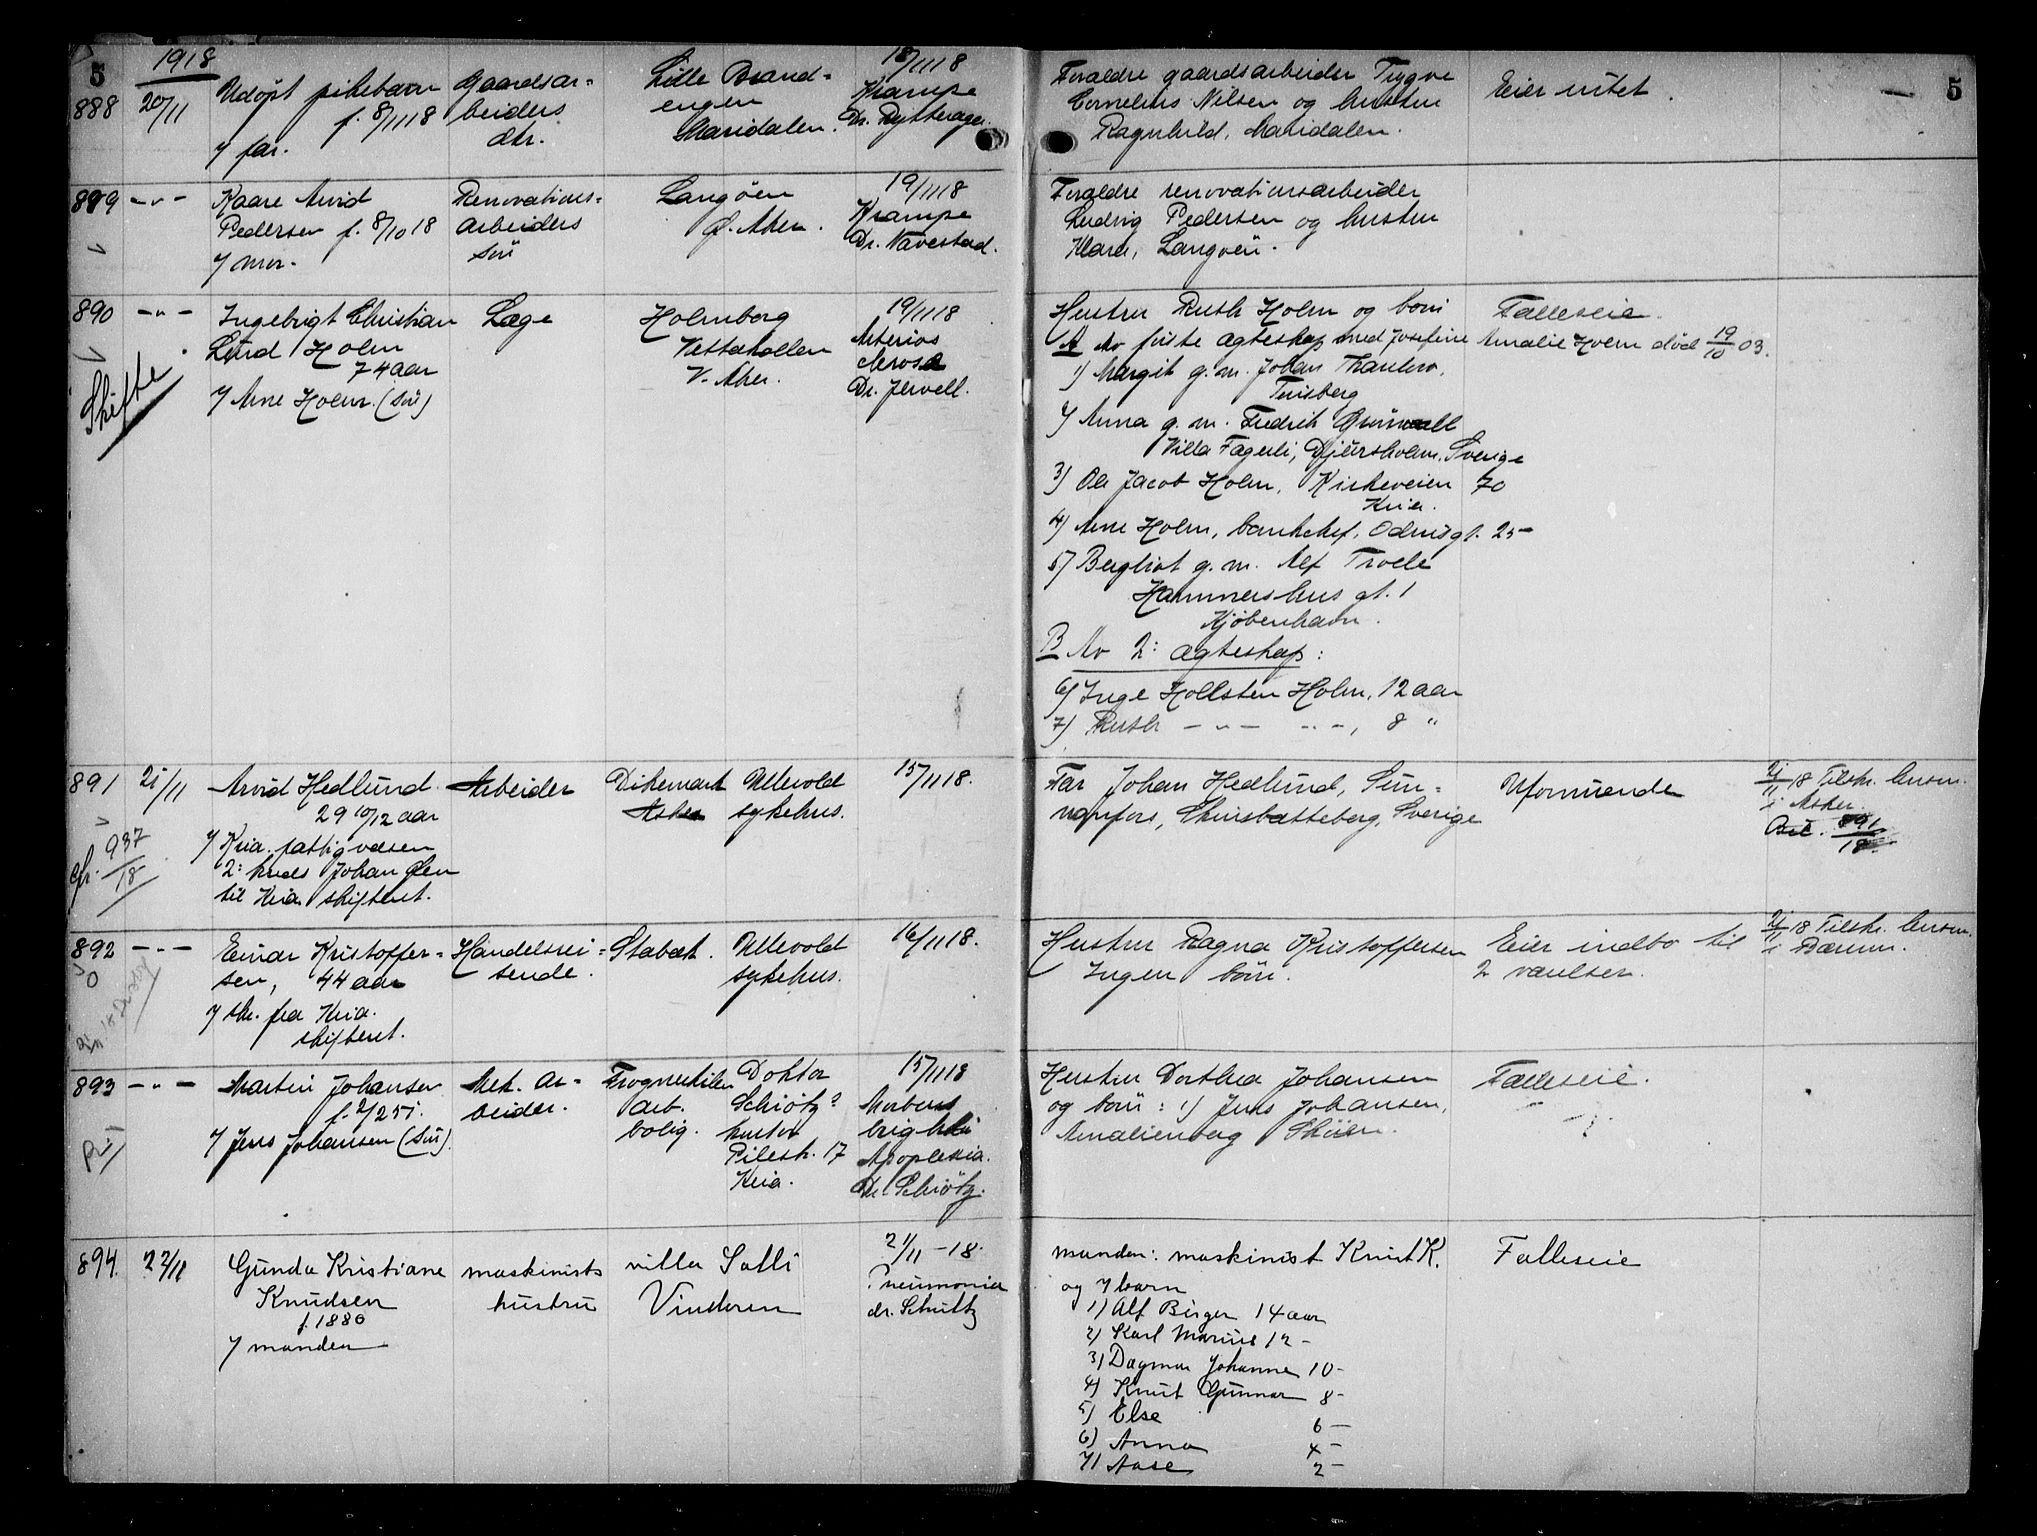 5
1918
888
20/11
Udöpt pikebarn
f. 8/11 18
/ far.
Gaardsar=
beiders
dtr.
Lille Brand=
engen
Maridalen.
18/11 18
Krampe
Dr. Rytterager.
Foraldre gaardsarbeider Trygve
Cornelius Nilsen og hustru
Ragnhild, Maridalen.
Eier intet.
— 5
889
-"-
Kaare Arvid
Pedersen f. 8/10 18
/ mor.
Renovations=
arbeiders
sön
Langöen
Ö. Aker.
19/11 18
Krampe
Dr. Navestad.
Foraldre renovationsarbeider
Ludvig Pedersen og hustru
Klara, Langöen.
890
-"-
Skifte
Ingebrigt Christian
Lund Holm
74 aar
/ Arne Holm. (sön)
Læge
Holmborg
Vettakollen
V. Aker.
19/11 18
Arterios
clerose
Dr. Jervell.
Hustru Ruth Holm og born
Falleseie.
A Av förste ægteskap med Josefine Amalie Holm död 19/10 03.
1) Margit g. m. Johan Thaulow,
Tönsberg
2) Anna g. m. Fredrik Grönwall
Villa Fagerli, Djürsholm, Sverige
3) Ole Jacob Holm, Kirkeveien 70
Kria.
4) Arne Holm, bankchef, Odinsgt. 25
5) Bergliot g. m. Alf Troele
Hammershus gt. 1
Kjöbenhavn.
B Av 2: ægteskap:
6) Inge Hollsten Holm, 12 aar
7) Ruth -"- -"-, 8 "
891
21/11
cfr. 937/18
Arvid Hedlund
29 10/12 aar
/ Kria. fattigvæsen
2: hvds Johan Olen
til Kria skifteret.
Arbeider
Dikemark
Asker
Ullevold
sykehus.
15/11 18.
Far Johan Hedlund, Sün=
nanfors, Skinsbatteberg, Sverige
Uformüende
21/11 18 Tilskr. lensm.
i Asker.
891/18
892
-"-
0
Einar Kristoffer=
sen, 44 aar
/ skr. fra Kria.
skifteret.
Handelsrei=
sende.
Stabæk.
Ullevold
sykehus.
16/11 18.
Hustru Ragna Kristoffersen
Ingen börn.
Eier indbo til
2 værelser.
21/11 18 Tilskr. lensm.
i Bærum.
893
-"-
Martin Johansen
f. 2/2 51.
/ Jens Johansen (sön).
Mek. ar=
beider.
Frognerkilen
arb.
bolig.
Doktor
Schiötz?
kontor
Pilestr. 17
Kria.
15/11 18
Morbus
brightii
Apoplexia.
Dr. Schiötz.
Hustru Dorthea Johansen
og börn: 1) Jens Johansen,
Amalienborg Sköien.
Falleseie.
894.
22/11
Gunda Kristiane
Knudsen
f. 1886
/ manden
maskinists
hustru
villa Solli
Vinderen
21/11 - 18.
Pneumonia
dr. Schultz
manden: maskinist Knut K.
og 7 barn
Falleseie
1) Alf Birger 14 aar
2) Karl Marius 12 -
3) Dagmar Johanne 10 -
4) Knut Gunnar 8 -
5) Else 6 -
6) Anna 4 -
7) Aase 2 -